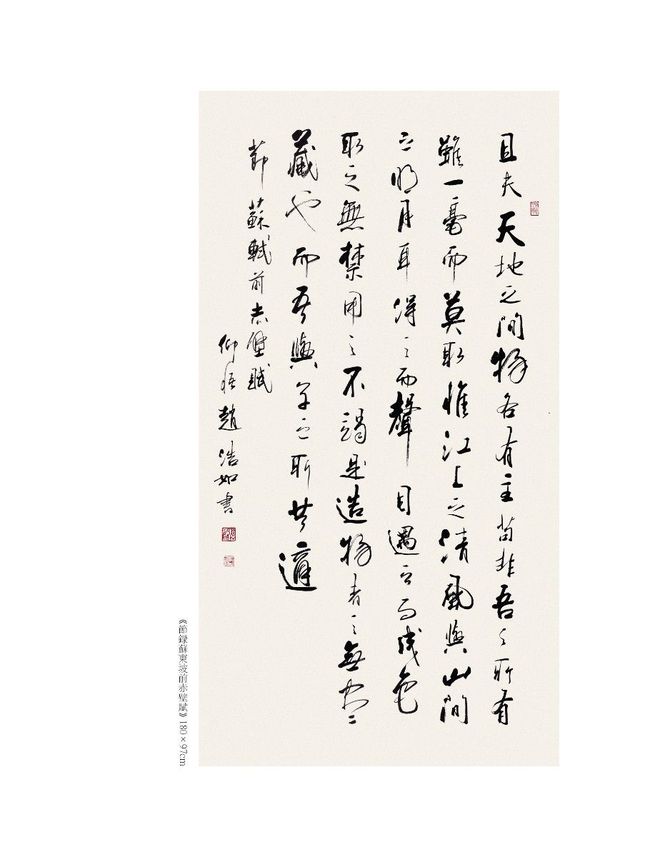 且夫天地之間物各有主苟非吾之所有
雖一毫而莫取惟江上之清風與山間
之明月耳得之而聲目遇之而成色
取之無禁用之不竭是造物者之無盡
藏也而吾與子之所共適
節蘇軾前赤壁賦
仰 趙浩如書
《節録蘇東坡前赤壁賦》180×97cm